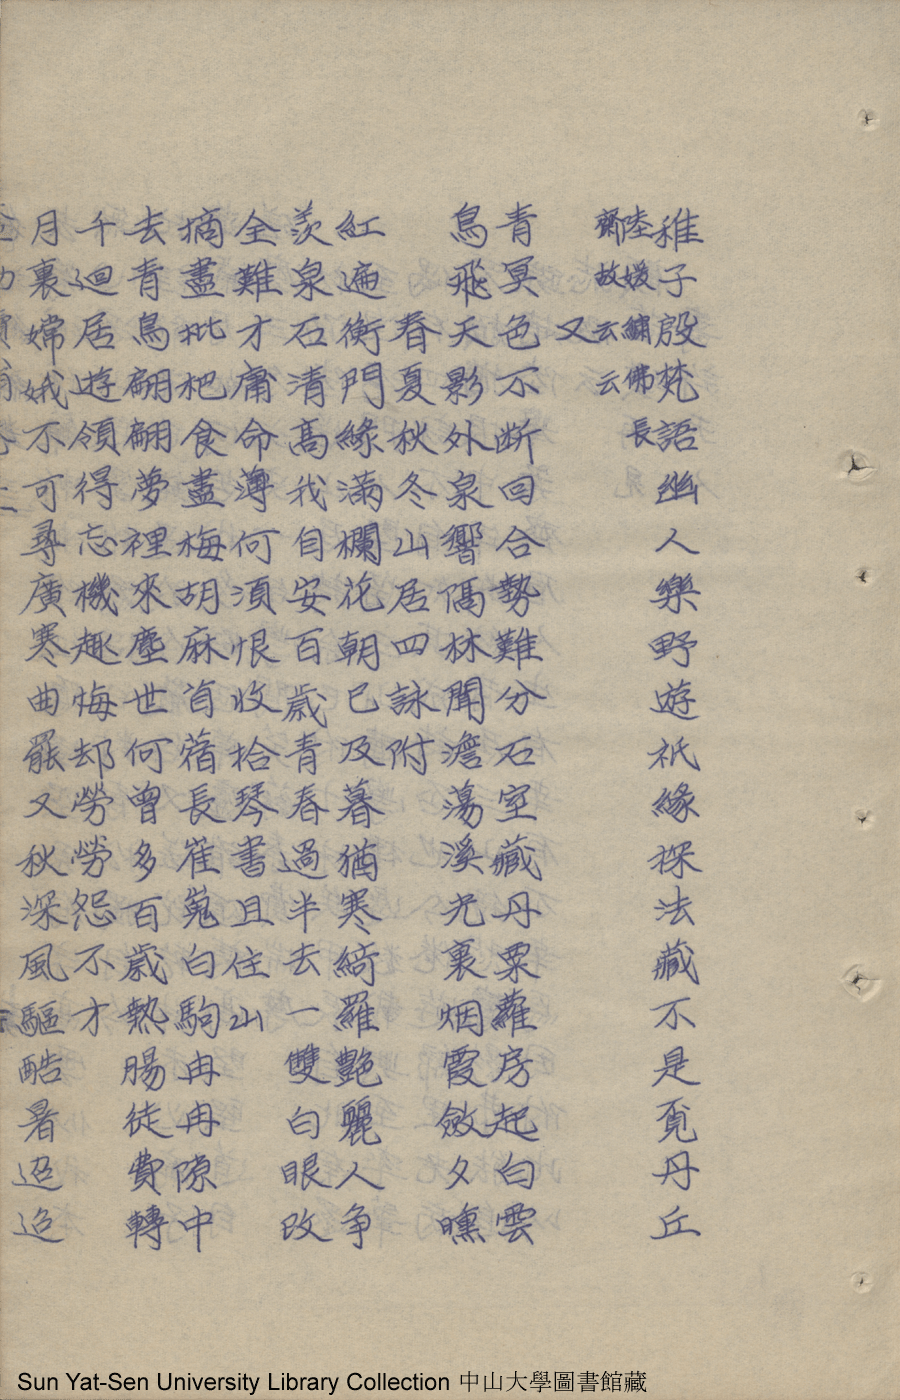 稚子殷梵語幽人樂野遊祇緣探法藏不是覔丹丘
陸嫒繡佛長
齋故云云
又
青冥色不断回合勢難分石室藏丹粟蘿房起白雲
鳥飛天影外泉響隔林聞澹蕩溪光裏烟霞斂夕曛
春夏秋冬山居四詠附
紅遍衡門緣滿欄花朝已及暮猶寒綺羅艷麗人争
羡泉石清高我自安百歲青春過半去一雙白眼改
全難才庸命薄何須恨收拾琴書且住山
摘盡枇杷食盡梅胡麻首蓿長崔嵬白駒冉冉隙中
去青鳥翩翩夢裡來塵世何曾多百歲熱腸徒費轉
千迴居遊領得忘機趣悔却勞勞怨不才
月裏嫦娥不可尋廣寒曲罷又秋深風驅酷暑迢迢